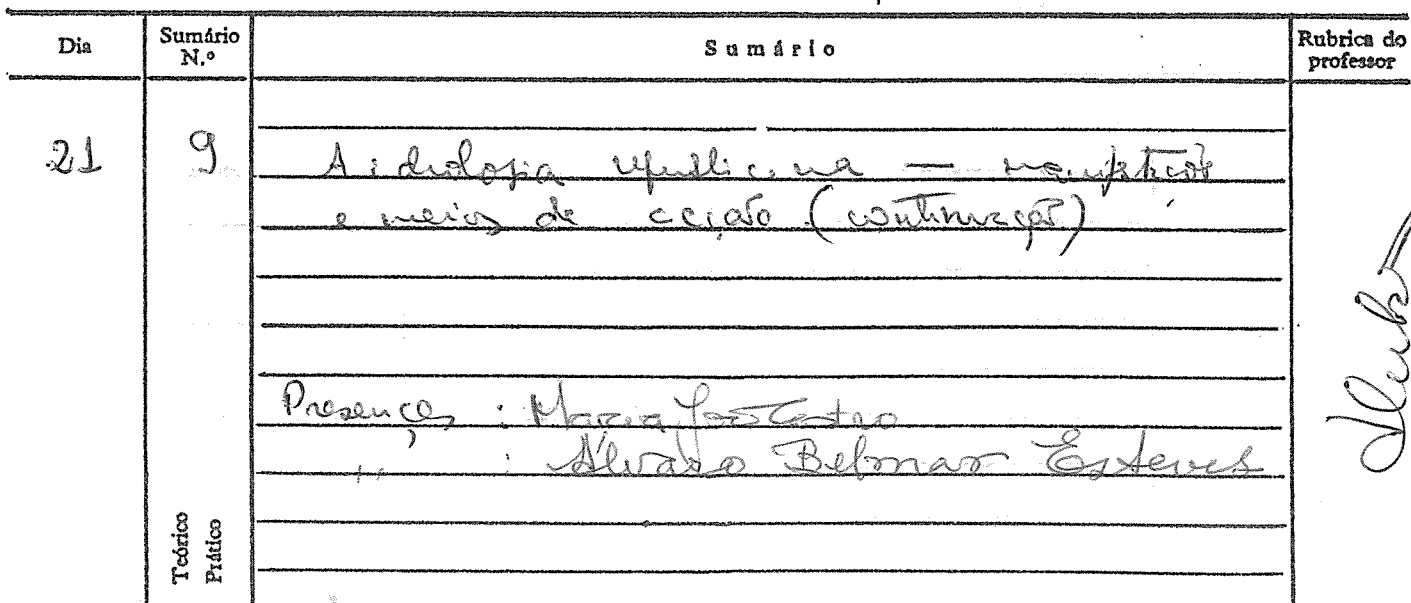 Dia Sumário N.º Sumário Rubrica do professor
21 9 A ideologia republicana —
e meios de acção (continuação)
Presenças : Maria João Castro
" : Álvaro Belmar Esteves
Teórico
Prático